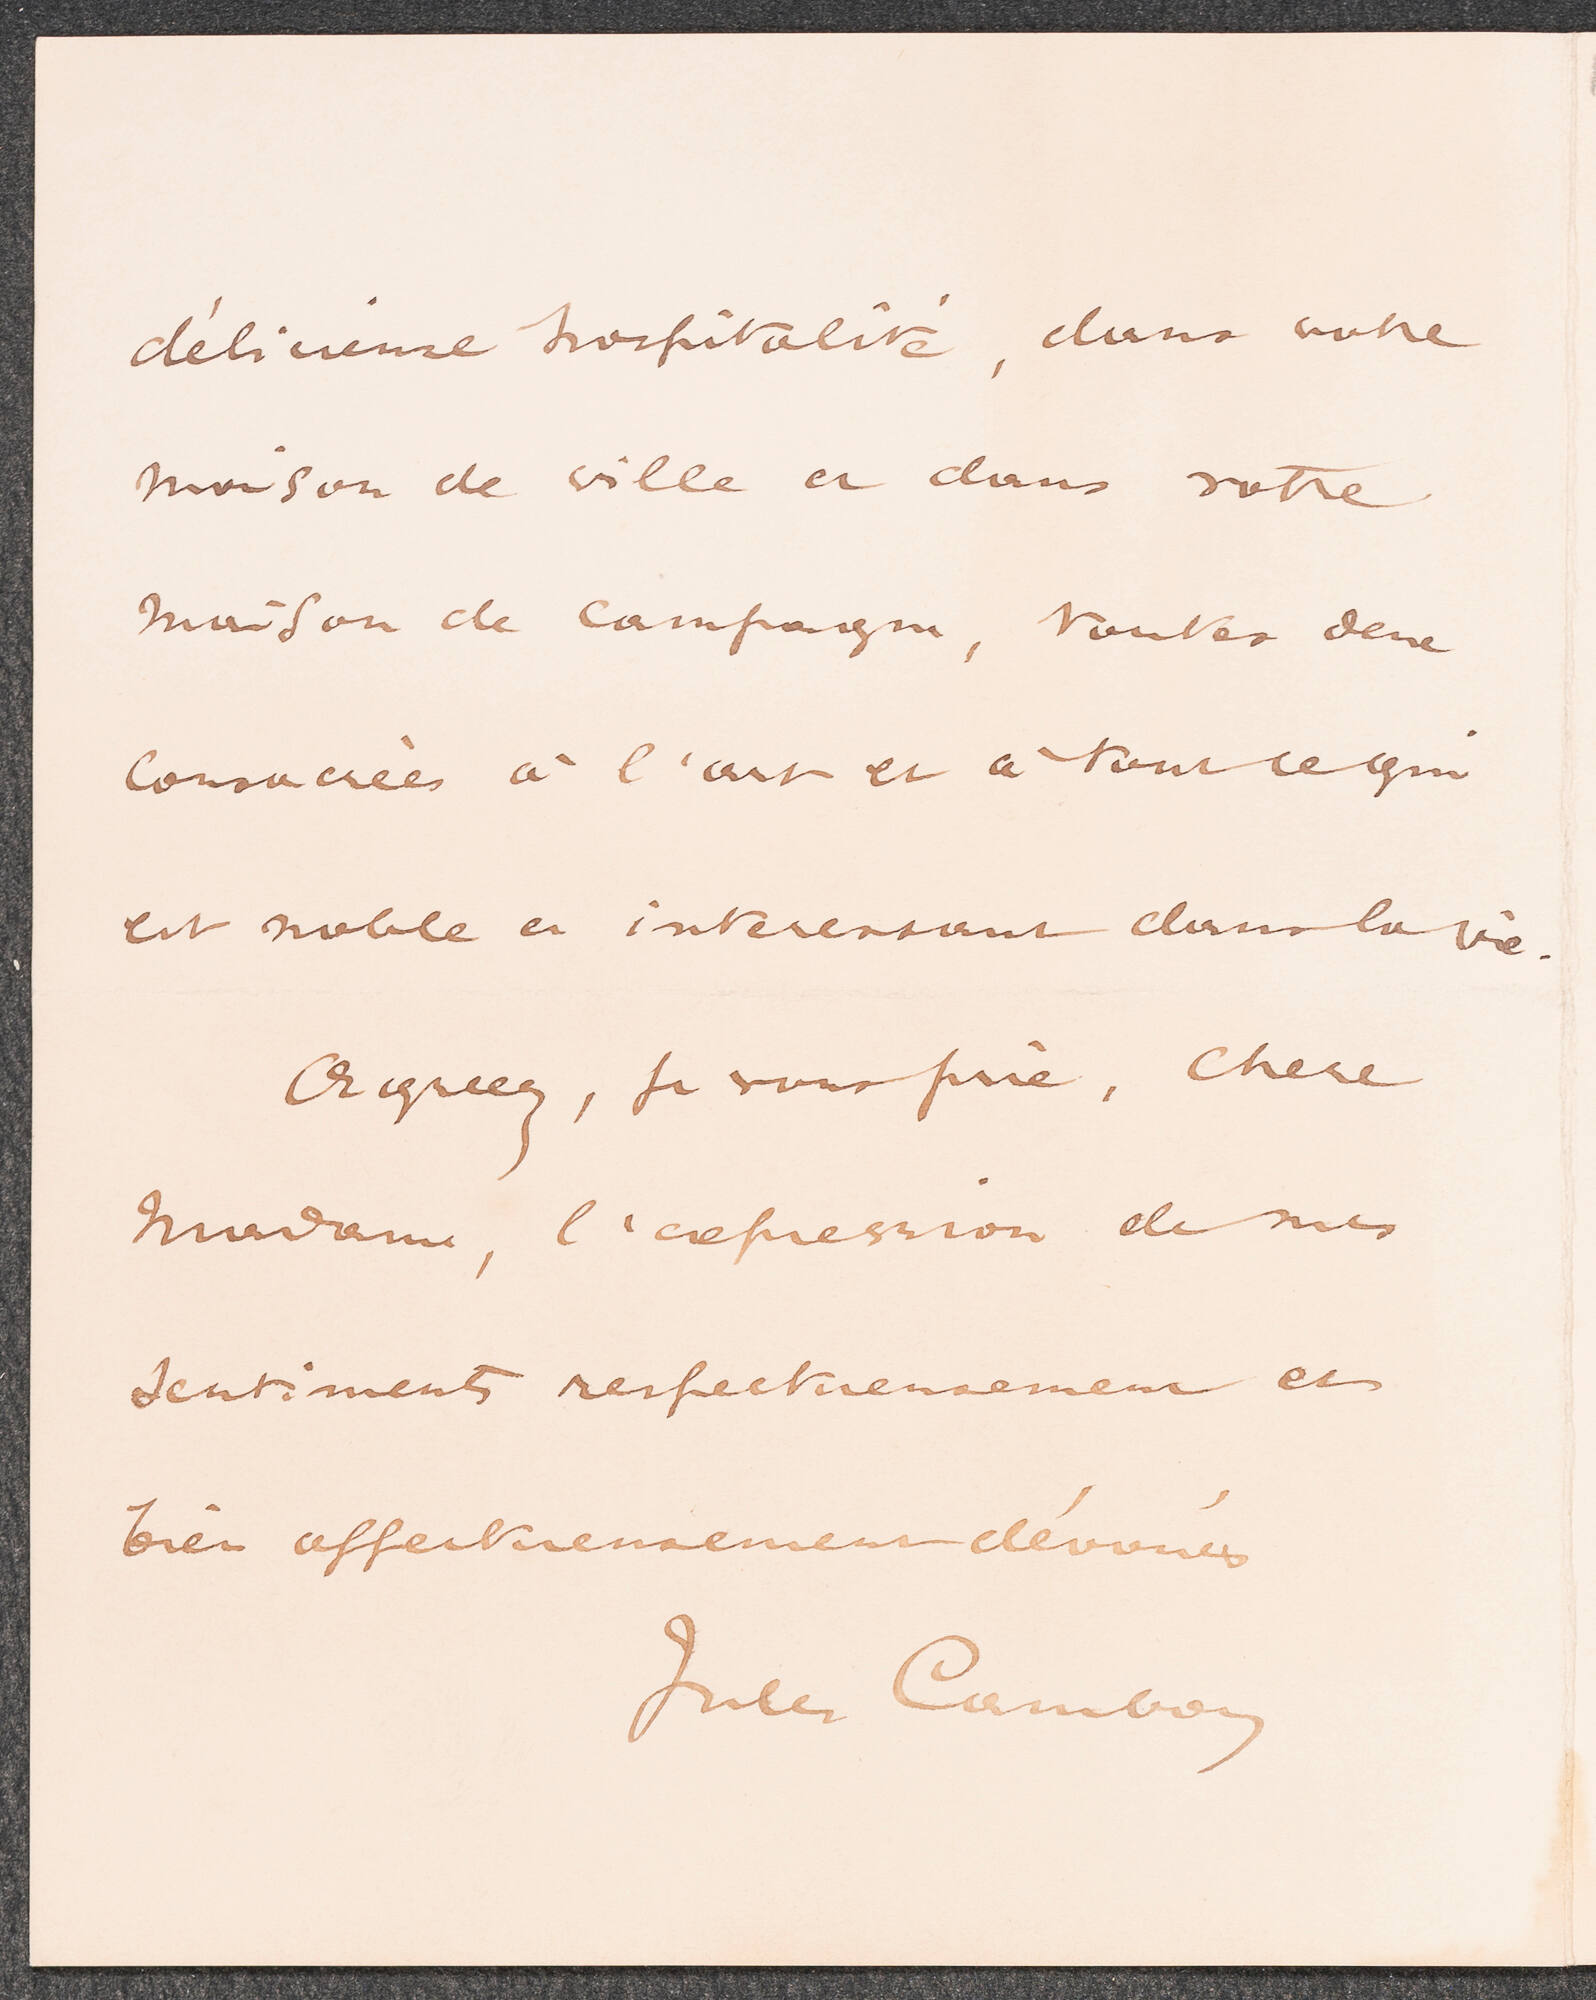 délicieuse hospitalité, dans votre
maison de ville et dans votre
maison de campagne, toutes deux
consacrées à l'art et à tout ce qui
est noble et interessant dans la vie.
Agreez, je vous prie, Chere
Madame, l'expression de mes
sentiments respectueusement et
bien affectueusement dévoués
Jules Cambon